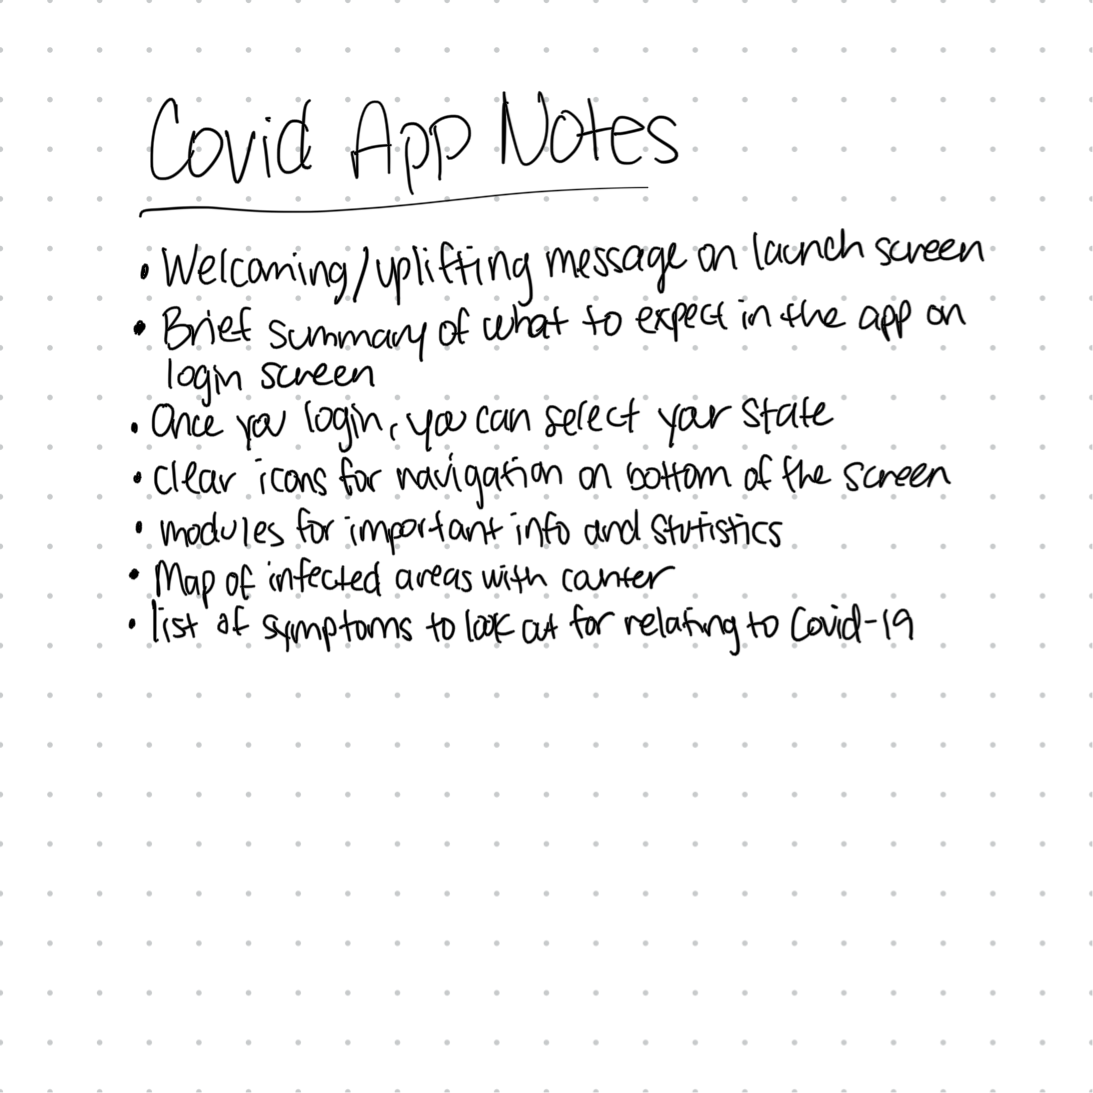 Covid App Notes
• Welcoming/uplifting message on launch screen
• Brief summary of what to expect in the app on
login screen
• Once you login, you can select your state
• clear icons for navigation on bottom of the screen
• modules for important info and statistics
• Map of infected areas with counter
• list of symptoms to look out for relating to Covid-19